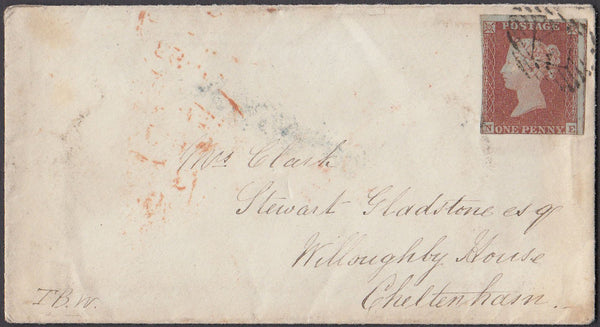 POSTAGE
N ONE PENNY E
Mrs Clark
Stewart Gladstone esq
Willoughby House
Cheltenham
I.B.W.